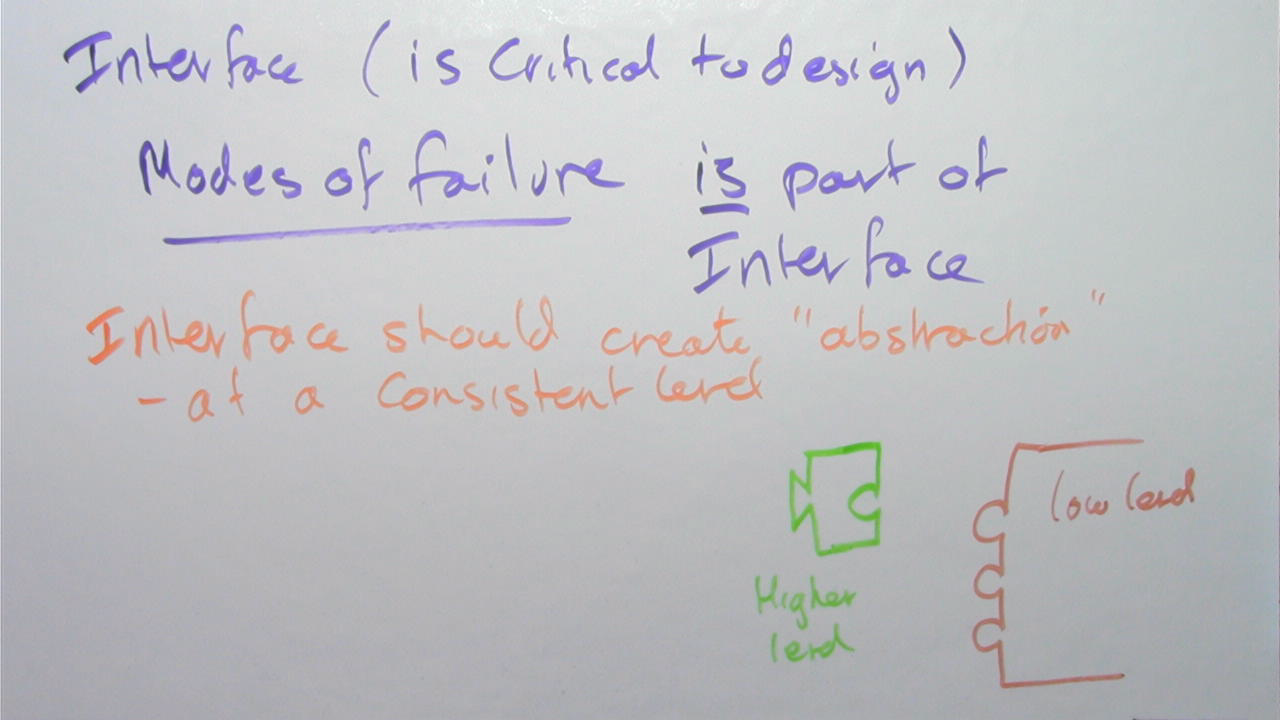 Interface (is Critical to design)
Modes of failure is part of
Interface
Interface should create "abstraction"
- at a consistent level
low level
Higher
level